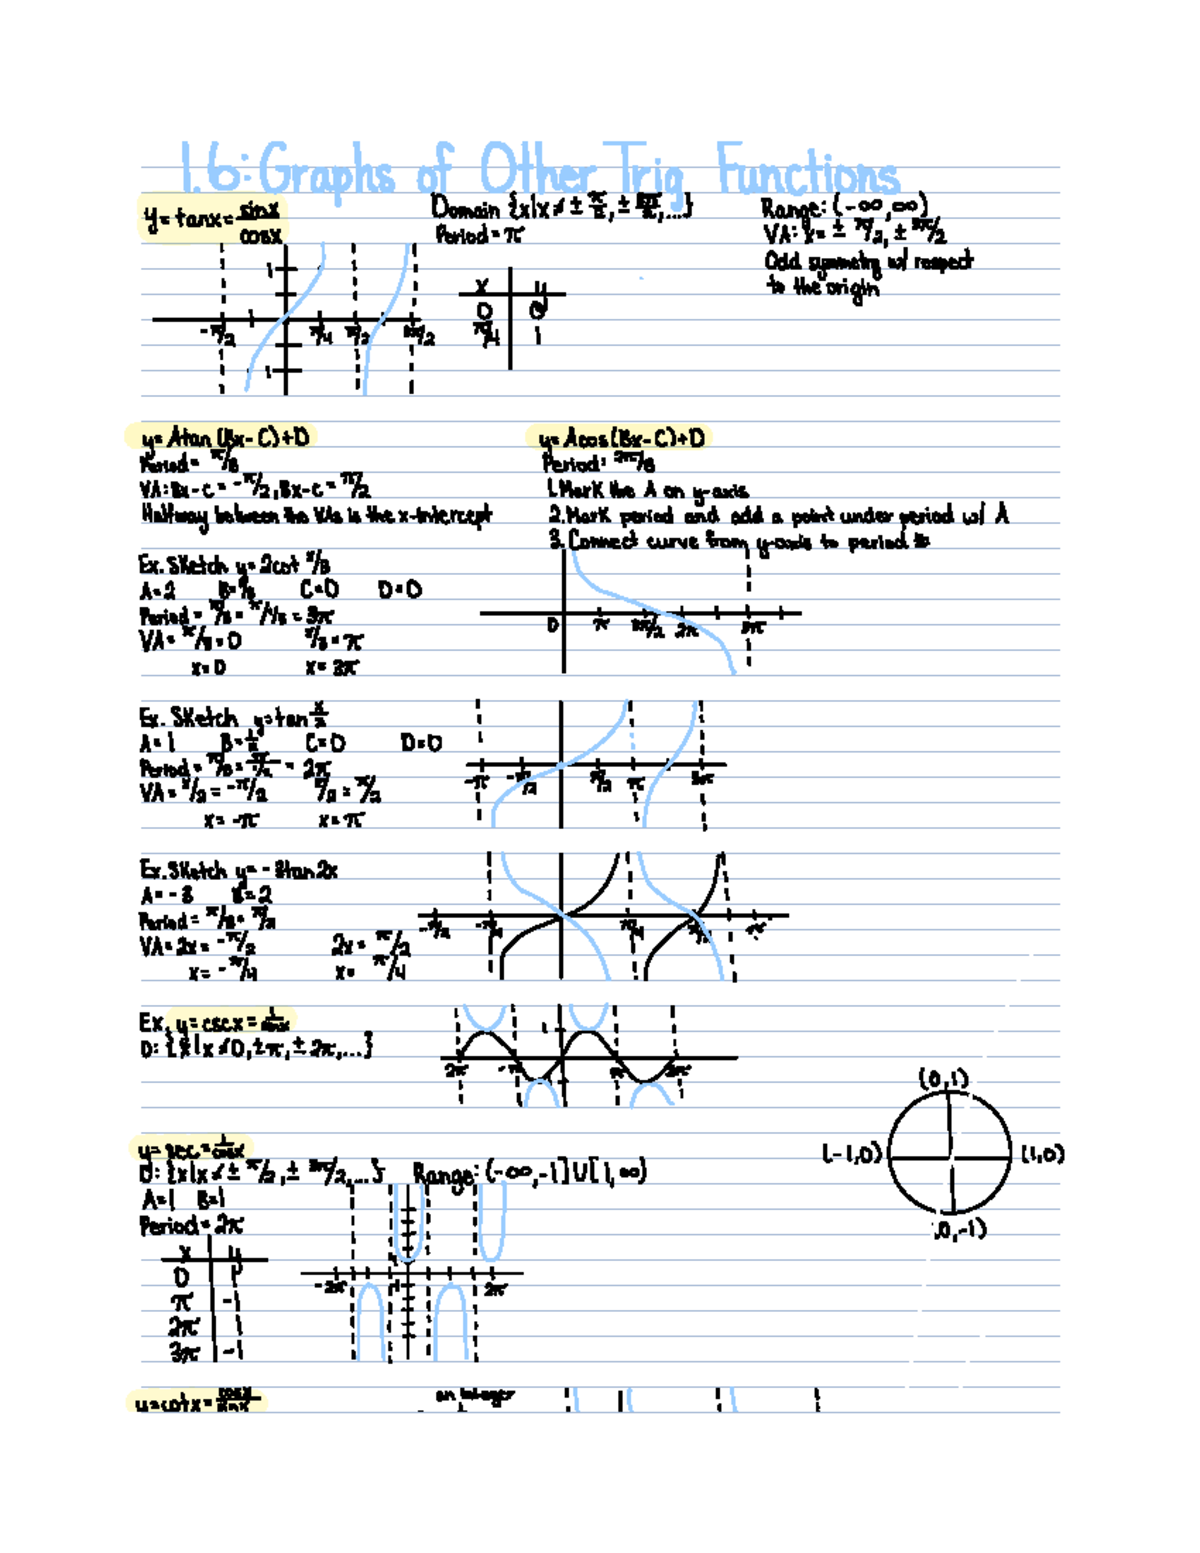 1.6: Graphs of Other Trig Functions
y = tanx = sinx/cosx
Domain {x|x ≠ ± π/2, ± 3π/2, ...}
Period = π
Range: (-∞, ∞)
VA: x = ± π/2, ± 3π/2
Odd symmetry w/ respect
to the origin
x y
0 0
π/4 1
1
-π/2 π/4 π/2 3π/2
1
y = Atan (Bx - C) + D
Period = π/B
VA: Bx - C = -π/2, Bx - C = π/2
Halfway between the VAs is the x-intercept
y = Acos (Bx - C) + D
Period: 2π/B
1. Mark the A on y-axis
2. Mark period and add a point under period w/ A
3. Connect curve from y-axis to period
Ex. Sketch y = 2cot x/3
A = 2 B = 1/3 C = 0 D = 0
Period = π/B = π/1/3 = 3π
VA = x/3 = 0 x/3 = π
x = 0 x = 3π
0 π 3π/2 2π 3π
Ex. Sketch y = tan x/2
A = 1 B = 1/2 C = 0 D = 0
Period = π/B = = 2π
VA = x/2 = -π/2 = π/2
x = -π x = π
-π -π/2 π/2 π 3π
Ex. Sketch y = -3tan2x
A = -3 B = 2
Period = π/B = π/2
VA = 2x = -π/2 2x = π/2
x = -π/4 x = π/4
-π/2 -π/4 π/4 π/2 π
Ex. y = cscx = 1/sinx
D: {x|x ≠ 0, ±π, ± 2π, ...}
1
2π -π π 2π
(0,1)
(-1,0) (1,0)
(0,-1)
y = sec = 1/cosx
D: {x|x ≠ ± π/2, ± 3π/2, ...} Range: (-∞, -1] U [1, ∞)
A = 1 B = 1
Period = 2π
x y
0 1
π -1
2π 1
3π -1
-2π 2π
y = cotx = cosx/sinx
an integer